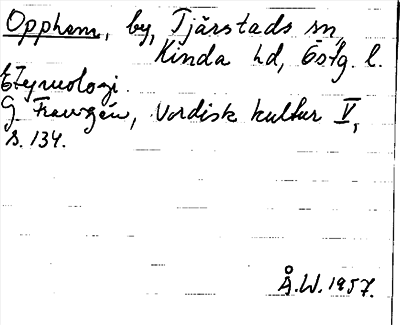 Opphem, by, Tjärstads sn,
Kinda hd, Östg. l.
Etymologi.
G. Franzén, Nordisk kultur V,
s. 134.
Å.W. 1957.